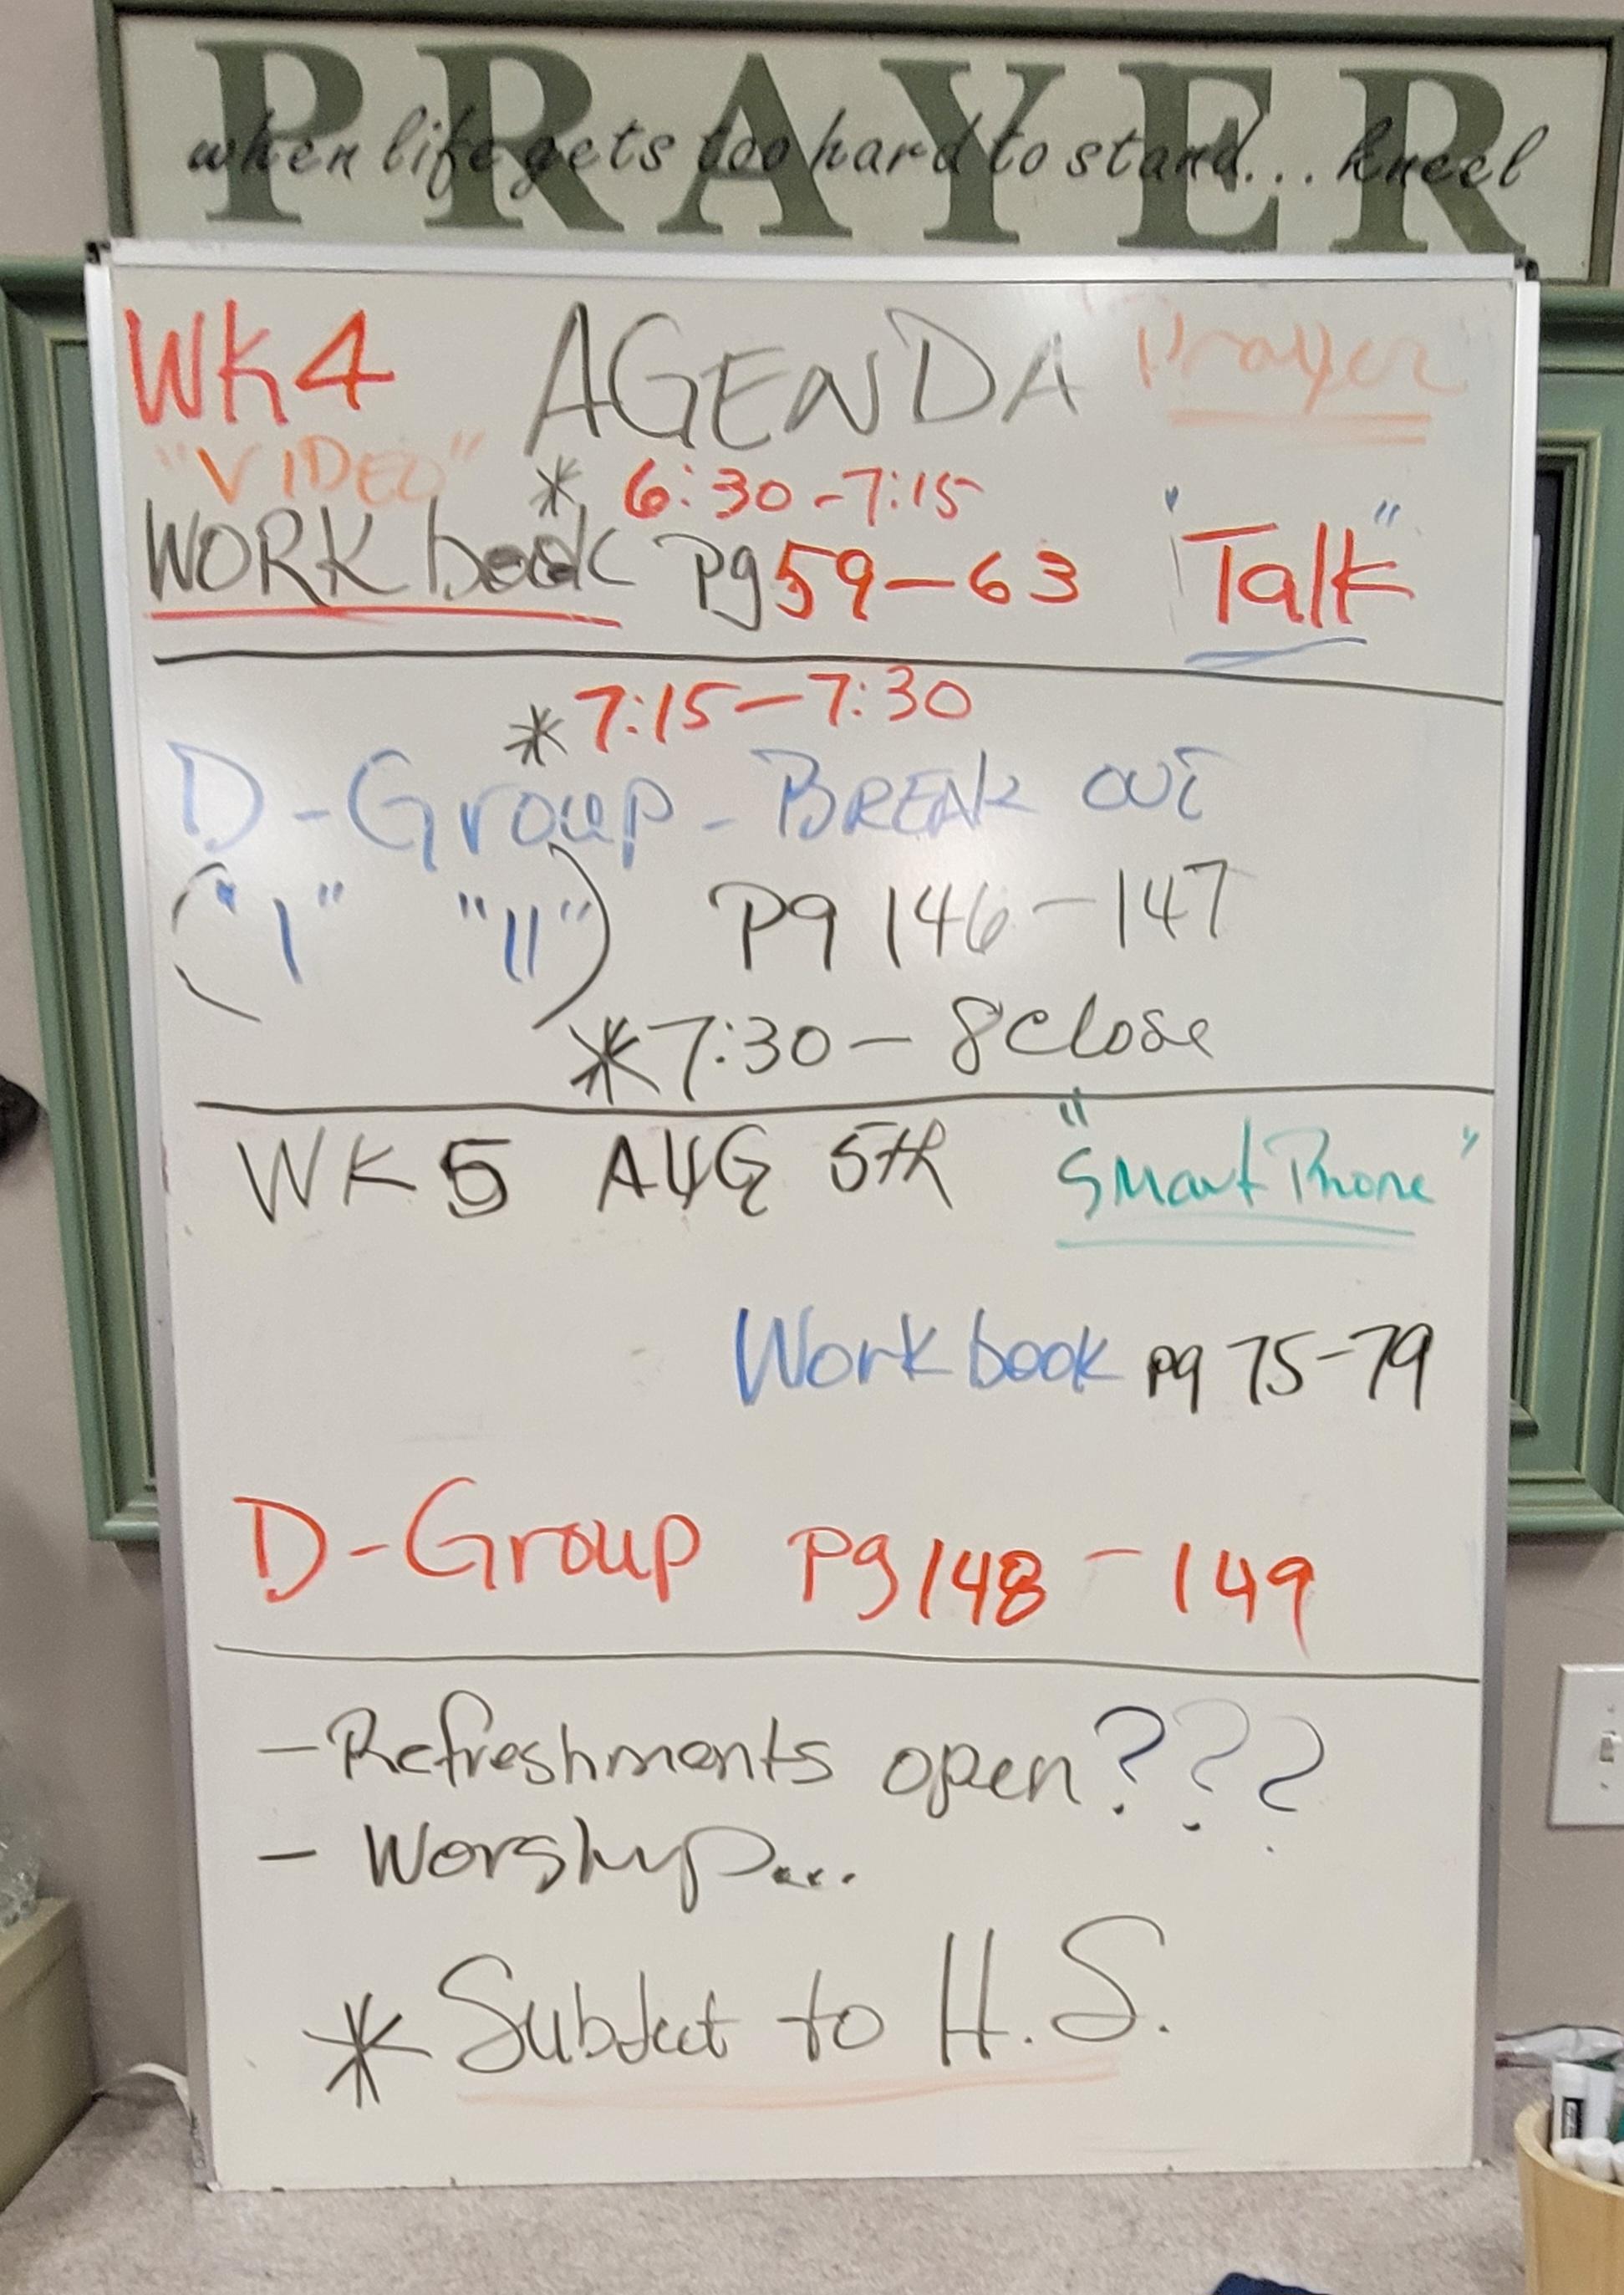 PRAYER
when life gets too hard to stand... kneel
WK4 AGENDA Prayer
"VIDEO" * 6:30-7:15
WORK book pg 59-63 "Talk"
*7:15-7:30
D-Group-BREAK OUT
("I" "II") Pg 146-147
*7:30-8 close
WK 5 AUG 5th "Smart Phone"
Work book pg 75-79
D-Group pg 148-149
- Refreshments open???
- Worship...
* Subject to H.S.